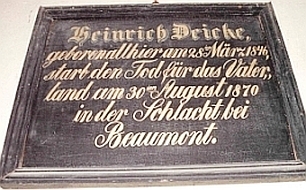 Heinrich Deicke,
geboren allhier am 28ten März 1846,
starb den Tod für das Vater,
land am 30ten August 1870
in der Schlacht bei
Beaumont.